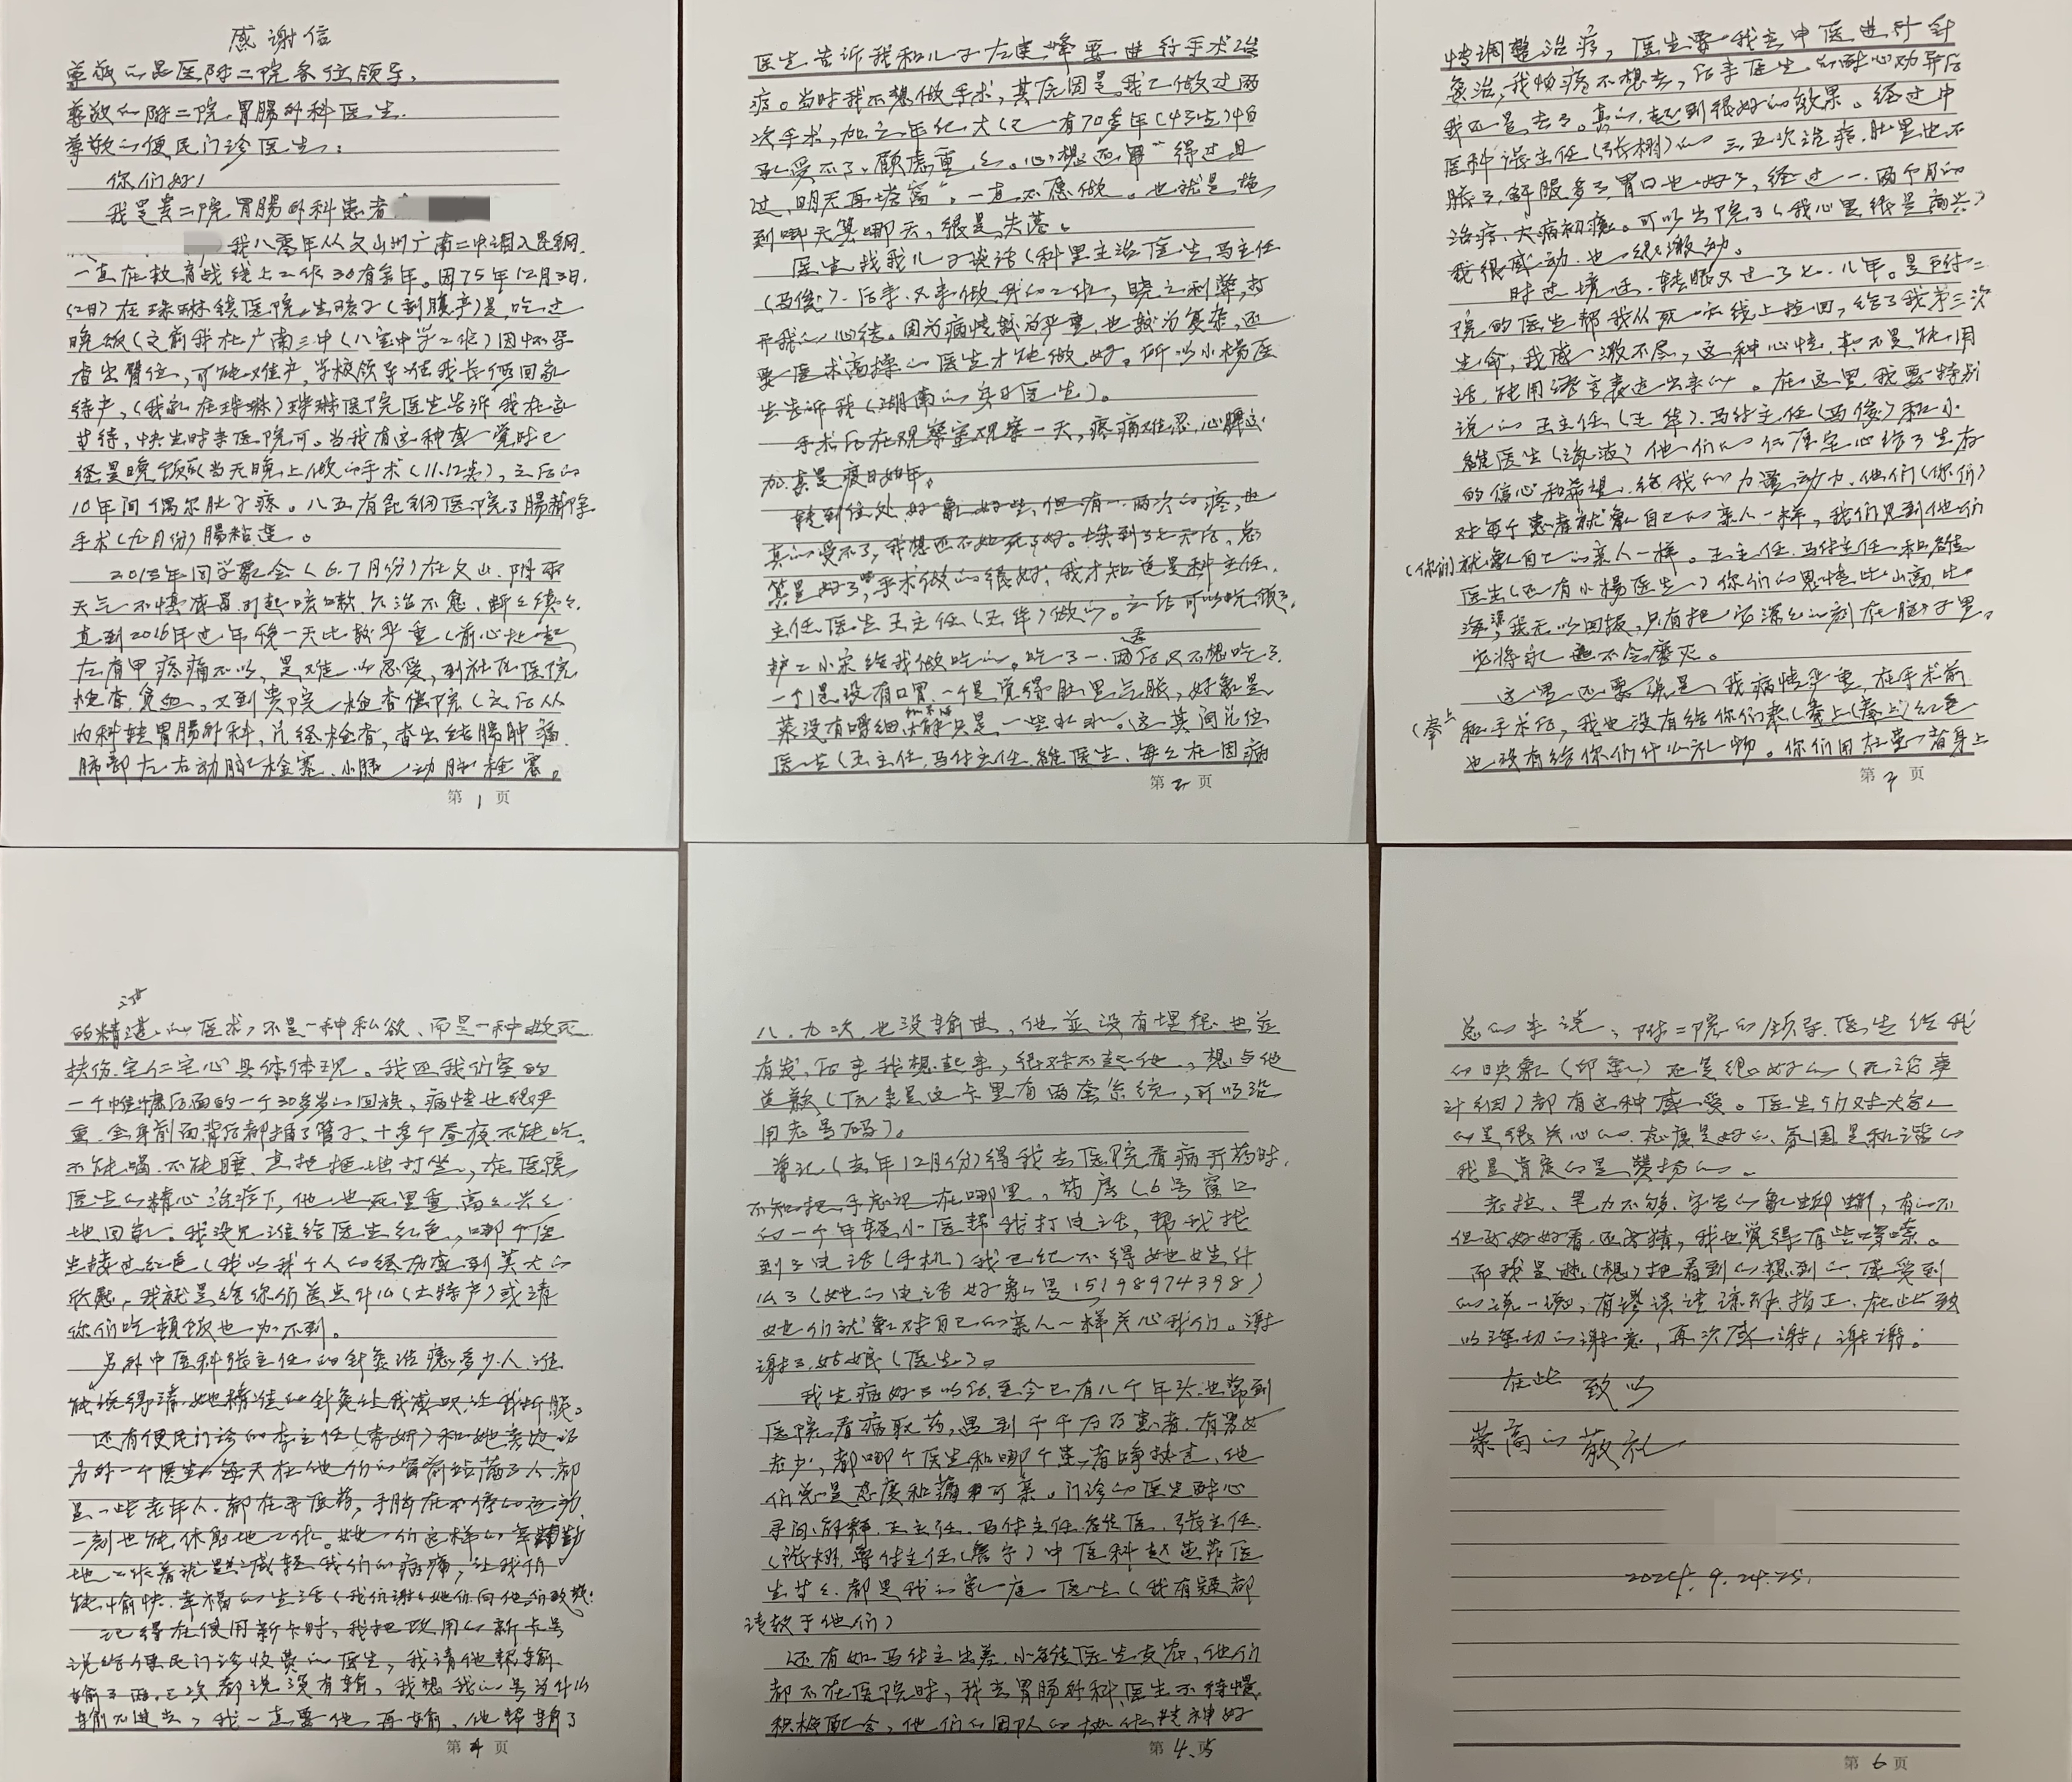 感谢信
尊敬的昆医附二院各位领导,
尊敬的附二院胃腸外科医生.
尊敬的便民门诊医生:
你们好!
我是贵二院胃腸外科患者
我八零年从文山州广南二中调入昆钢.
一直在教育战线上工作30有余年。因75年12月3日.
(2日)在珠琳镇医院生孩子(剖腹产)是,吃过
晚饭(之前我在广南三中(八宝中学工作)因怀孕
查出臂位,可能难产,学校领导给我长假回家
待产,(我家在珠琳)珠琳医院医生告诉我在家
苦待,快生时来医院可。当我有这种感觉时已
经是晚饭(当天晚上做的手术(11.12点),之后的
10年间偶尔肚子疼。八五有昆钢医院了腸部除
手术(九月份)腸粘连。
2015年同学聚会(6.7月份)在文山.阴雨
天气不慎感冒引起咳嗽,久治不愈,断々续々
直到2016年过年后一天比较严重(前心肚皮
左右甲疼痛不以,是难以忍受,到社区医院
检查.贫血,又到贵院检查住院(之后从
内科转胃腸外科,几经检查,查出结腸肿瘤.
肺部左右动脉栓塞、小腸动脉栓塞。
第1页
医生告诉我和儿子左建峰要进行手术治
疗。当时我不想做手术,其原因是.我已做过两
次手术,加之年纪大(已有70多年(43生)怕
承受不了.顾虑重々。心想还留"得过且
过,明天再塔窝"。一直不愿做。也就是拖
到哪天算哪天,很是失落。
医生找我儿子谈话(科里主治医生,马主任
(马俊)、后来又来做我的工作,晓之利弊,打
开我的心结。因为病情较为严重,也较为复杂,还
要医术高操的医生才能做好。所以小楊医
生告诉我(湖南的实习医生)。
手术后在观察室观察一天,疼痛难忍,心脾交
加.真是度日如年。
转到住处,好象好些,但有一.两次的疼,也
真的受不了,我想还不如死了好。熬到了七天后,总
算是好了些,手术做的很好,我才知道是科主任.
主任医生王主任(王华)做的。之后可以吃饭了.
护工小宋给我做吃的。吃了一.两天后又不想吃了.
一个是没有口胃.一个是觉得肚里气胀,好象是
菜没有嚼细只是一些水水。这其间几位
医生(王主任.马付主任.维医生.每々在因病
第2页
情调整治疗,医生要我去中医进行针
灸治,我怕疼不想去,后来医生的耐心劝导后
我还是去了。真的,起到很好的效果。经过中
医科张主任(张栩)的三.五次治疗.肚里也不
胀了,舒服多了,胃口也好了,经过一.两个月的
治疗,大病初癒。可以出院了(我心里很是高兴)
我很感动.也很激动。
时过境迁.转眼又过了七.八年。是医附二
院的医生帮我从死亡线上拉回,给了我第三次
生命,我感激不尽,这种心情.真不是能用
话.能用语言表达出来的。在这里我要特别
说的王主任(王华).马付主任(马俊)和小
維医生(海波)他们的仁厚宅心给了生存
的信心和希望.给我的力量.动力.他们(你们)
对每个患者就象自己的亲人一样,我们见到他们
(你们)就象自己的亲人一样。王主任.马付主任和維
医生(还有小楊医生)你们的恩情比山高.比
海深.我无以回报,只有把它深々的刻在脑子里,
它将永远不会磨灭。
这里还要说是,我病情严重,在手术前
和手术后,我也没有给你们奉(奉上)红色
(奉上
也没有给你们什么礼物。你们用在患者身上
第3页
的精湛的医术,不是一种私欲、而是一种救死
扶伤.宅仁宅心具体体现。我还我们室的
一个 30多岁的回族,病情也很严
重.全身前面背后都插了管子,十多个昼夜不能吃.
不能喝.不能睡. 地打坐,在医院
医生的精心治疗下,他也死里重.高々兴々
地回家。我没见谁给医生红色,哪个医
生接过红色(我以我个人的经历感到莫大的
欣慰,我就是给你们差点什么(土特产)或请
你们吃顿饭也办不到。
另外中医科张主任的针灸治癒多少人.谁
能说得清.她精准的针灸让我减哎.让我折服。
还有便民门诊的李主任(李妍)和她旁边的
另外一个医生,每天在他们的窗前站满了人.都
是一些老年人.都在寻医药,手脑在不停的运动,
一刻也能休息地工作。她们这样的辛勤
地工作着就是减轻我们的病痛,让我们
能愉快.幸福的生活(我们谢々她们.向他们致敬!
记得在使用新卡时,我把改用的新卡号
说给便民门诊收费的医生,我请他帮输.
输了两.三次都说没有输,我想我的号为什么
输不进去,我一直要他再输.他帮输了
第4页
八.九次.也没输进,他並没有埋怨.也並
有发,后来我想起来,很对不起他,想与他
道歉(原来是这卡里有两套系统,可以沿
用老号码)。
曾记(去年12月份)得我去医院看病开药时.
不知把手机忘在哪里,药房(6号窗口
的一个年轻小医帮我打电话,帮我找
到了电话(手机)我已经不得她姓什
么了(她的电话好象是15198974398)
她们就象对自己的亲人一样关心我们。谢
谢了.姑娘(医生)。
我生病好了以后.至今已有几个年头.也常到
医院看病取药,遇到千千万万患者.有男女
老少,都哪个医生和哪个患者争执过.他
们总是态度和藹可亲。门诊的医生耐心
寻问.解释.王主任.马付主任.維医.张主任.
(张栩.曹付主任(詹宇)中医科赵 医
生等々.都是我的家庭医生(我有疑都
请教于他们)
还有如马付主出差.小維医生支农,他们
都不在医院时,我去胃肠外科.医生不待慢.
积极配合,他们的团队的协作精神好
第4.5页
总的来说,附二院的领导.医生给我
的映象(印象)还是很好的(无论事
计细)都有这种感受。医生们对大家
的是很关心的.态度是好的、氛围是和谐的
我是肯定的是赞扬的。
老拉、笔力不够.字写的象蚯蚓,有的不
但不好好看.还 猜,我也觉得有些啰嗦。
而我是 (想)把看到的.想到的.感受到
的说一说,有謬误请 指正.在此致
以深切的谢意,再次感谢,谢谢。
在此 致以
崇高的敬礼
2024.9.24.25.
第6页